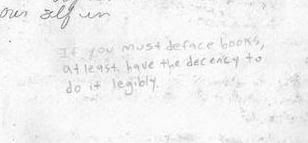 our self in
If you must deface books,
at least have the decency to
do it legibly.